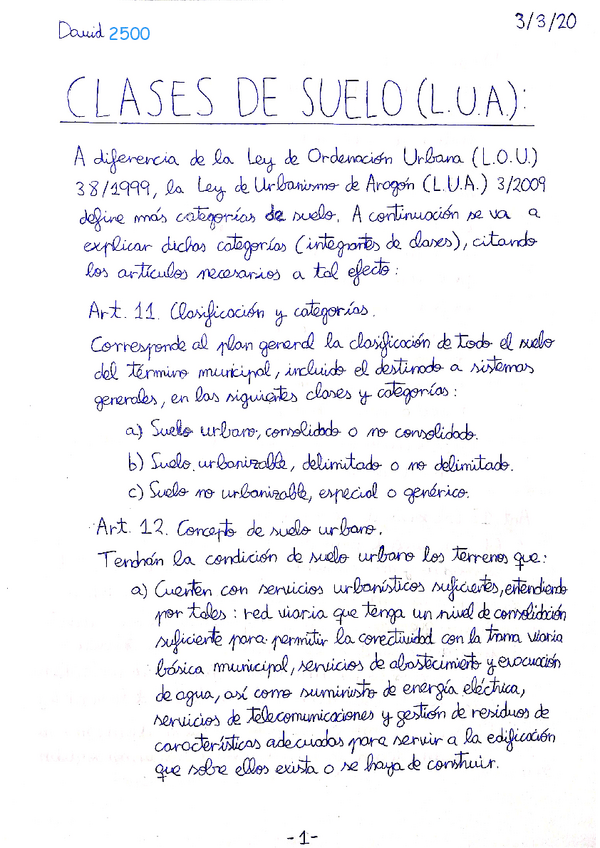 David 2500
3/3/20
CLASES DE SUELO (L.U.A.):
A diferencia de la Ley de Ordenación Urbana (L.O.U.)
38/1999, la Ley de Urbanismo de Aragón (L.U.A.) 3/2009
define más categorías de suelo. A continuación se va a
explicar dichas categorías (integrantes de clases), citando
los artículos necesarios a tal efecto:
Art. 11. Clasificación y categorías.
Corresponde al plan general la clasificación de todo el suelo
del término municipal, incluido el destinado a sistemas
generales, en las siguientes clases y categorías:
a) Suelo urbano, consolidado o no consolidado.
b) Suelo urbanizable, delimitado o no delimitado.
c) Suelo no urbanizable, especial o genérico.
Art. 12. Concepto de suelo urbano.
Tendrán la condición de suelo urbano los terrenos que:
a) Cuenten con servicios urbanísticos suficientes, entendiendo
por tales: red viaria que tenga un nivel de consolidación
suficiente para permitir la conectividad con la trama viaria
básica municipal, servicios de abastecimiento y evacuación
de agua, así como suministro de energía eléctrica,
servicios de telecomunicaciones y gestión de residuos de
características adecuadas para servir a la edificación
que sobre ellos exista o se haya de construir.
-1-